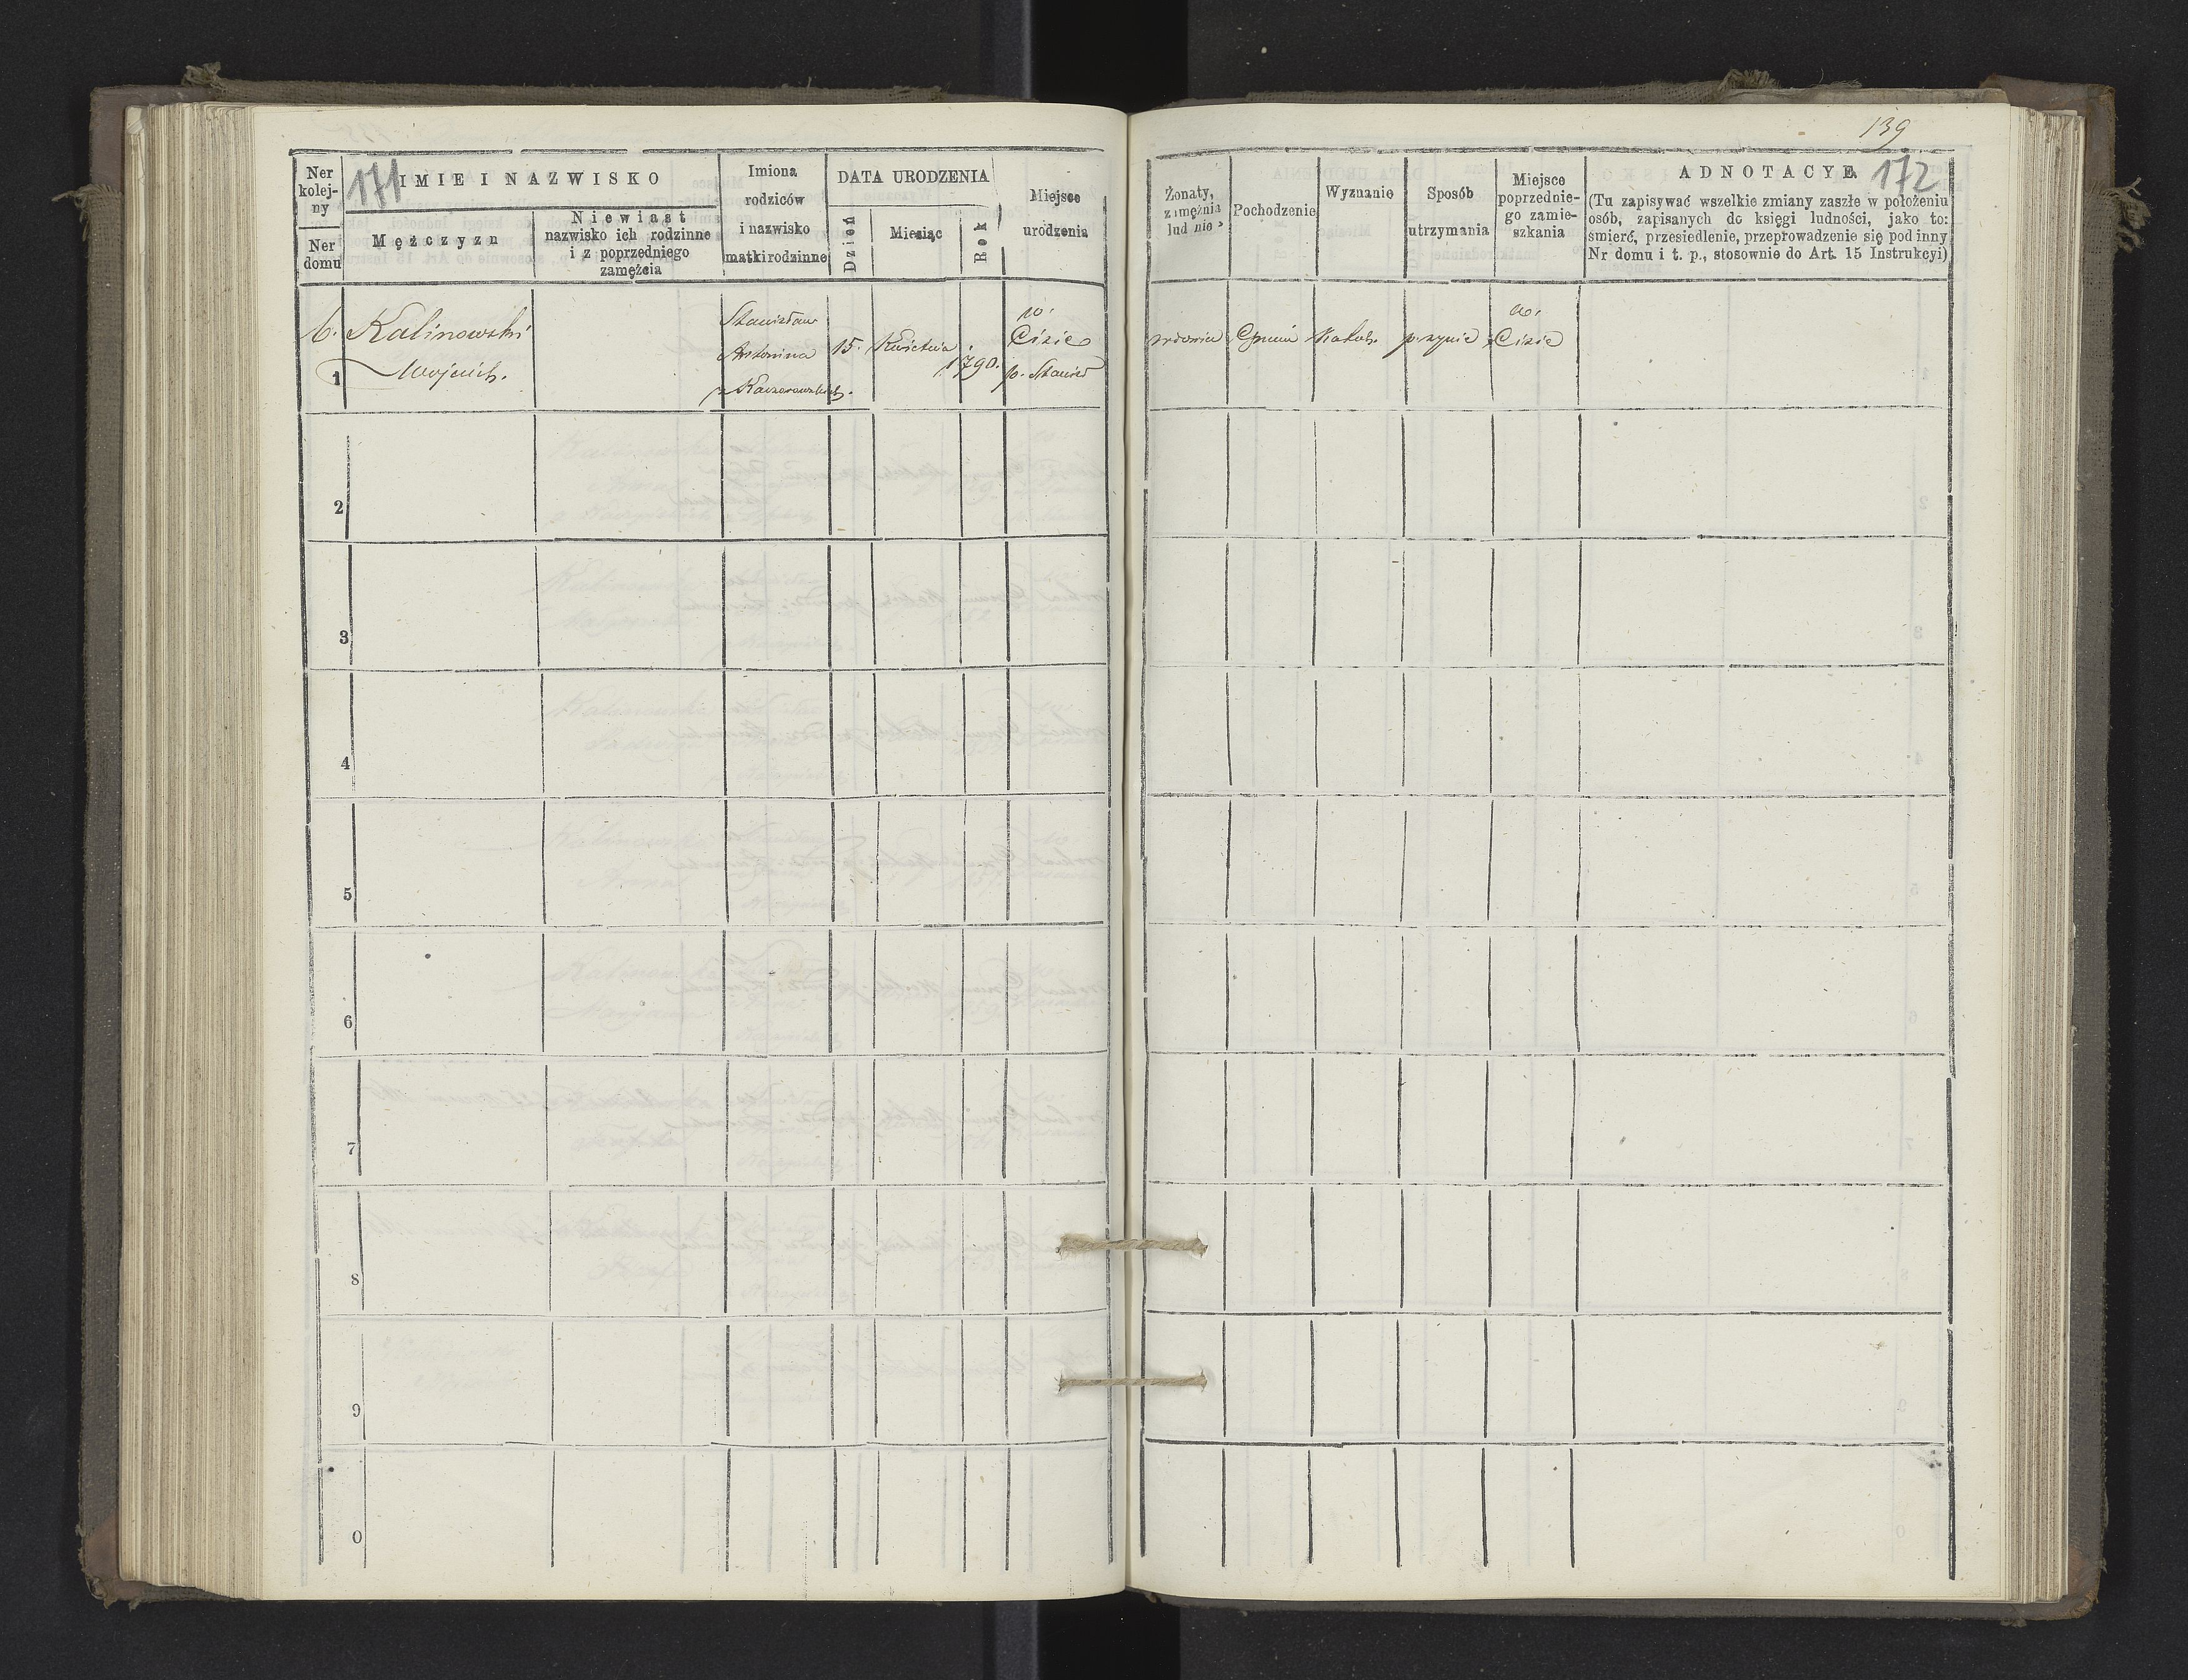 139
171
172
Ner kolejny
Ner domu
IMIE I NAZWISKO
Mężczyzn
Niewiast
nazwisko ich rodzinne
i z poprzedniego
zamęźcia
Imiona
rodziców
i nazwisko
matki rodzinne
DATA URODZENIA
Dzień
Miesiąc
Rok
Miejsce
urodzenia
Żonaty,
zamężnia
lud nie
Pochodzenie
Wyznanie
Sposób
utrzymania
Miejsce
poprzednie-
go zamie-
szkania
ADNOTACYE
(Tu zapisywać wszelkie zmiany zaszłe w położeniu
osób, zapisanych do księgi ludności, jako to:
śmierć, przesiedlenie, przeprowadzenie się pod inny
Nr domu i t. p., stosownie do Art. 15 Instrukcyi)
6. Kalinowski
Wojciech.
Stanisław
Antonina
z Kaczorowskich.
15. Kwietnia 1790.
w.
Cisie
p. Stanisł
wdowiec Gminn Katol. przynie
w.
Cisie
1
2
3
4
5
6
7
8
9
0